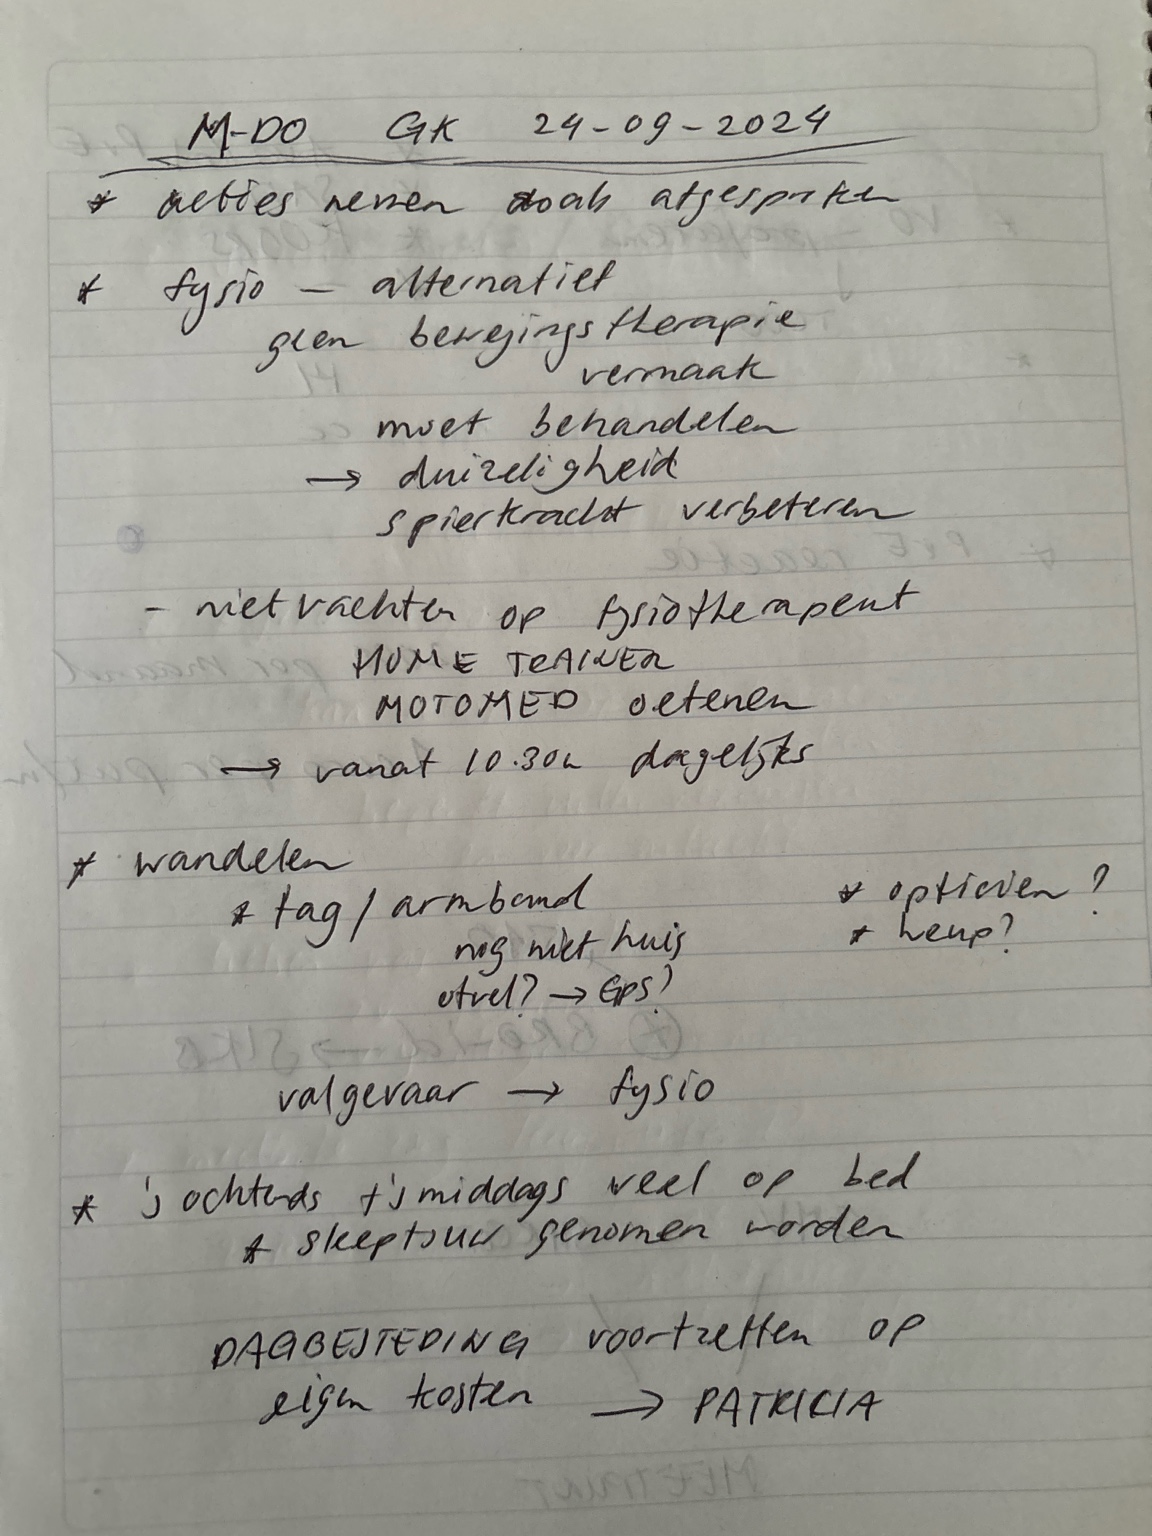 M-DO GK 24-09-2024
* acties nemen zoals afgesproken
* fysio – alternatief
geen bewegingstherapie
vermaak
moet behandelen
→ duizeligheid
spierkracht verbeteren
- niet wachten op fysiotherapeut
HOME TRAINER
MOTOMED oefenen
→ vanaf 10.30u dagelijks
* wandelen
* tag / armband
nog niet huis
of wel? → GPS?
* opticien?
* heup?
valgevaar → fysio
* 's ochtends + 's middags veel op bed
* sleeptouw genomen worden
DAGBESTEDING voortzetten op
eigen kosten → PATRICIA